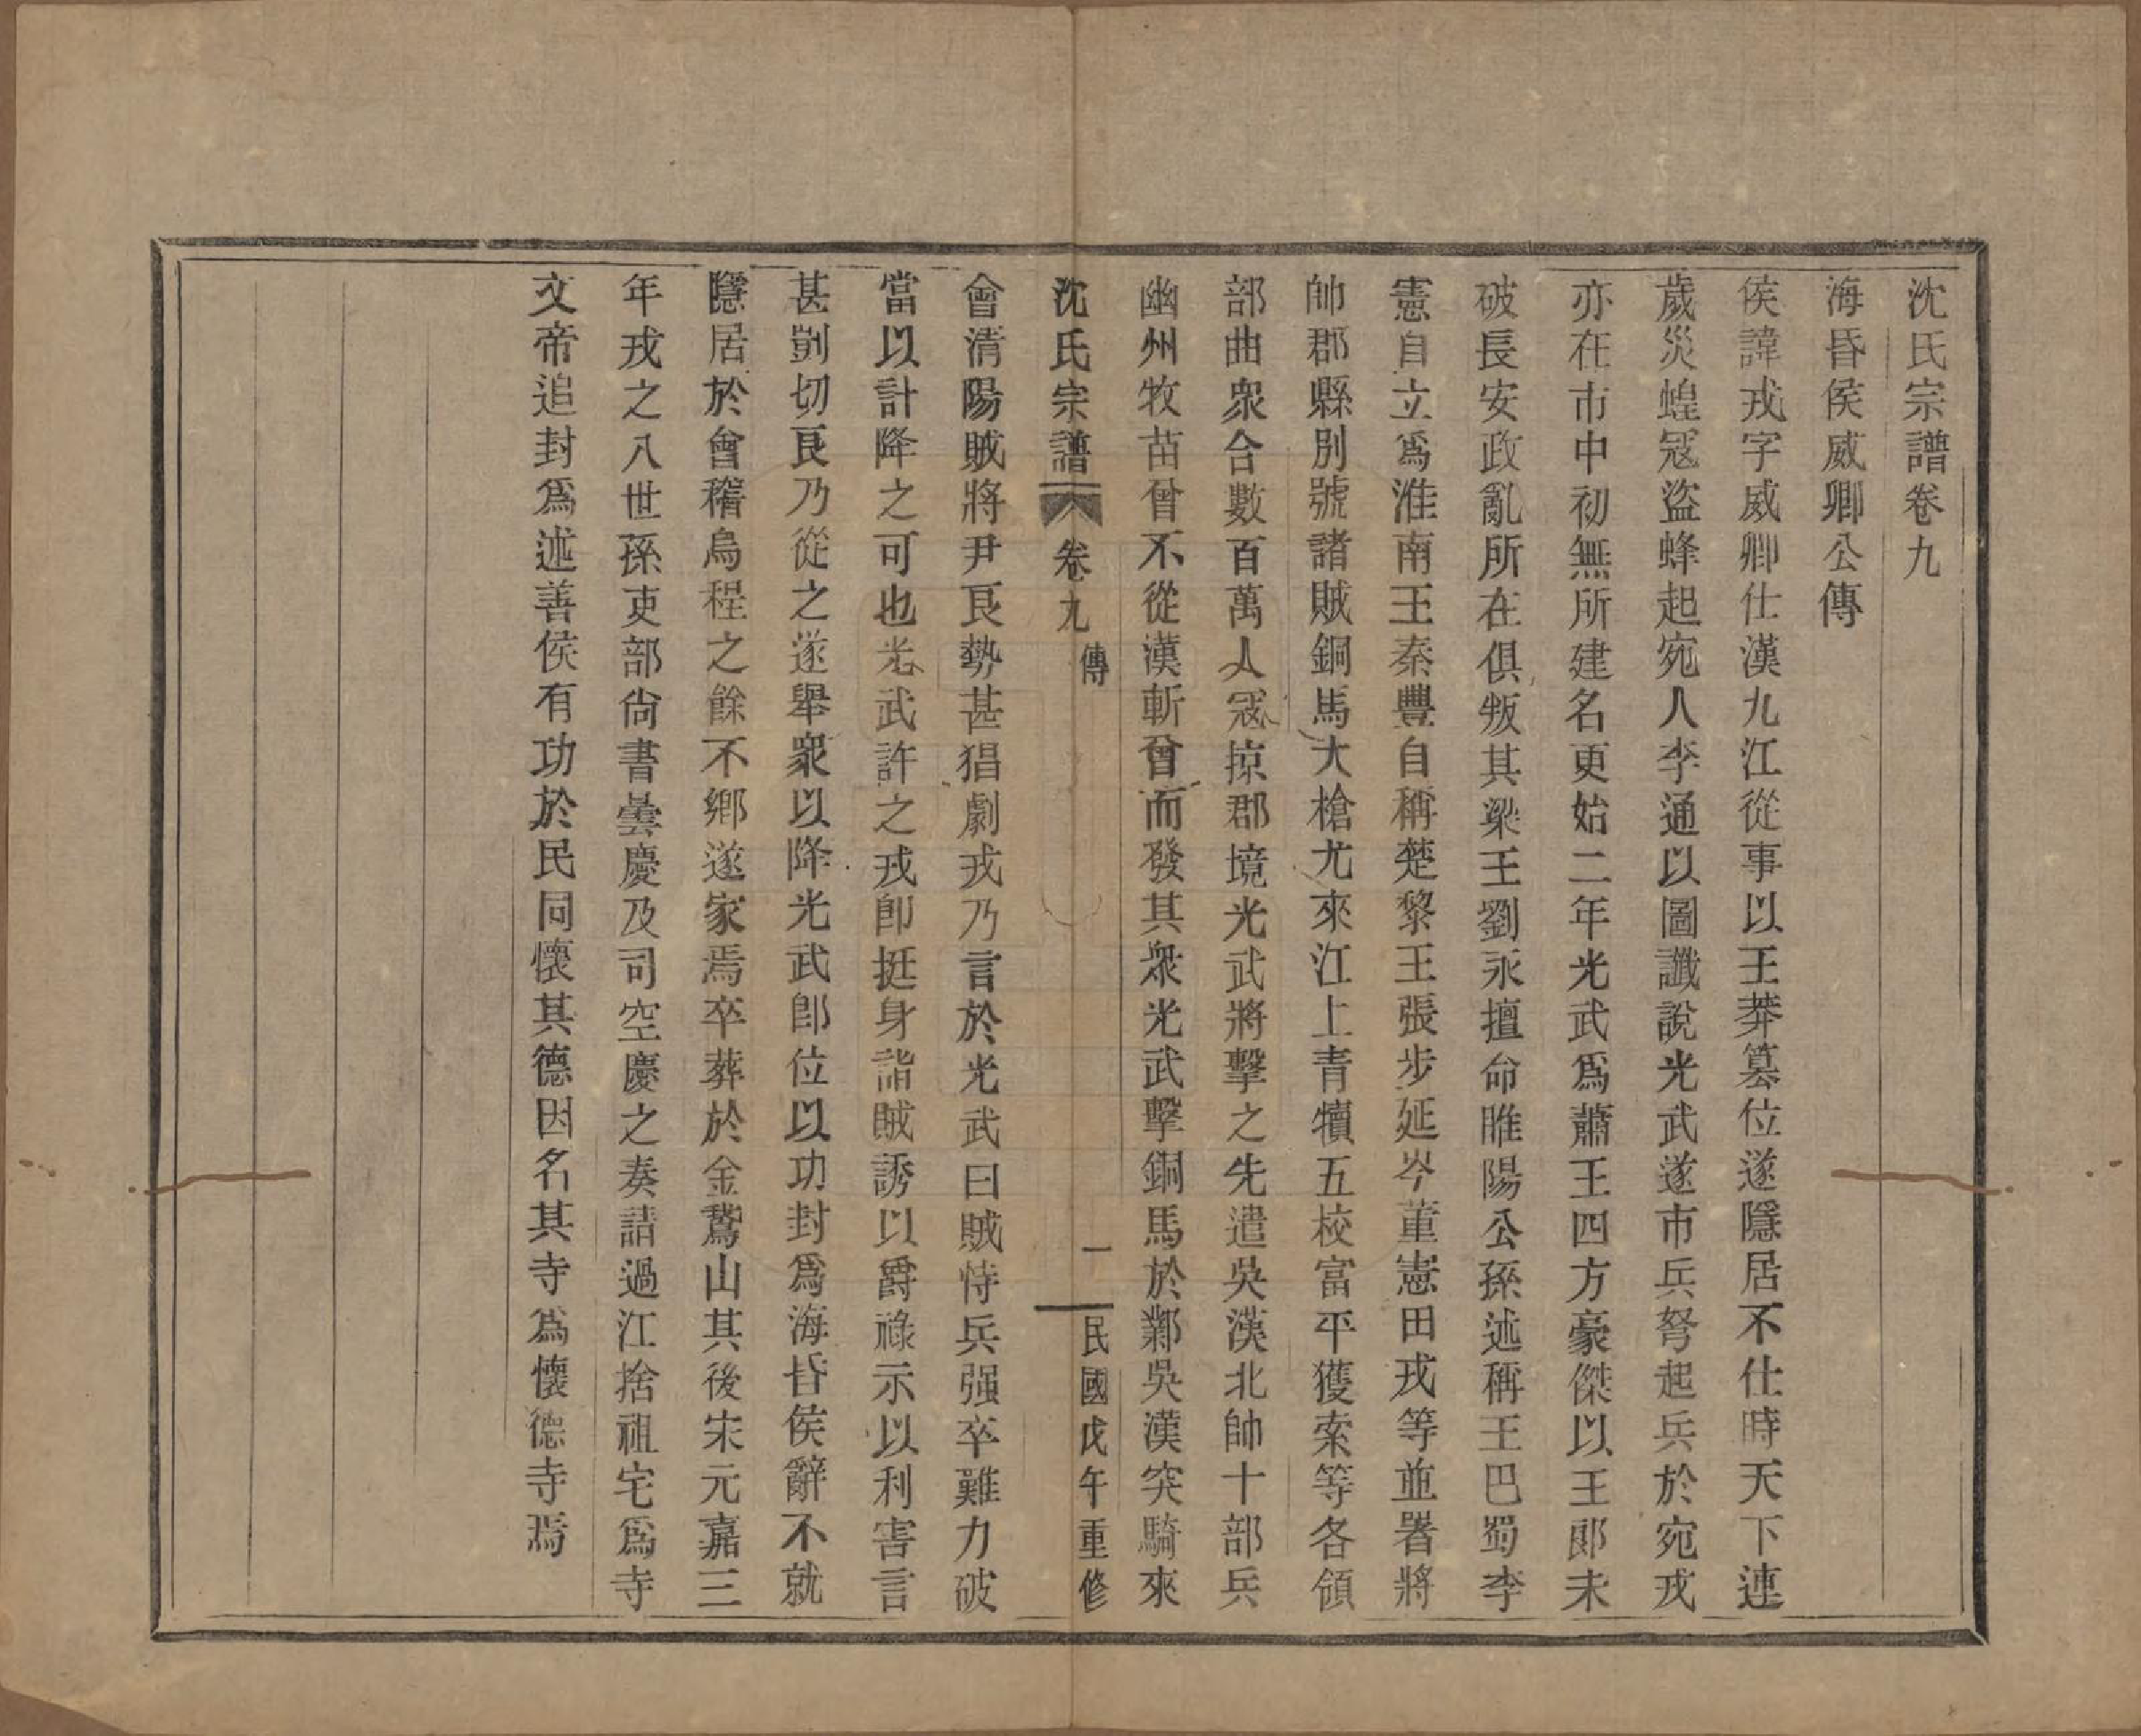 沈氏宗譜卷九
海昏侯威卿公傳
侯諱戎字威卿仕漢九江從事以王莽篡位遂隱居不仕時天下連
歲災蝗寇盜蜂起宛人李通以圖讖說光武遂市兵弩起兵於宛戎
亦在市中初無所建名更始二年光武爲蕭王四方豪傑以王郞未
破長安政亂所在俱叛其梁王劉永擅命睢陽公孫述稱王巴蜀李
憲自立爲淮南王秦豐自稱楚黎王張步延岑董憲田戎等並署將
帥郡縣別號諸賊銅馬大槍尤來江上青犢五校富平獲索等各領
部曲衆合數百萬人寇掠郡境光武將擊之先遣吳漢北帥十部兵
幽州牧苗曾不從漢斬曾而發其衆光武擊銅馬於鄴吳漢突騎來
沈氏宗譜 卷九 傳 一 民國戊午重修
會清陽賊將尹良勢甚猖劇戎乃言於光武曰賊恃兵强卒難力破
當以計降之可也光武許之戎卽挺身詣賊誘以爵祿示以利害言
甚剴切良乃從之遂舉衆以降光武卽位以功封爲海昏侯辭不就
隱居於會稽烏程之餘不鄕遂家焉卒葬於金鵞山其後宋元嘉三
年戎之八世孫吏部尙書曇慶及司空慶之奏請過江捨祖宅爲寺
文帝追封爲述善侯有功於民同懷其德因名其寺爲懷德寺焉